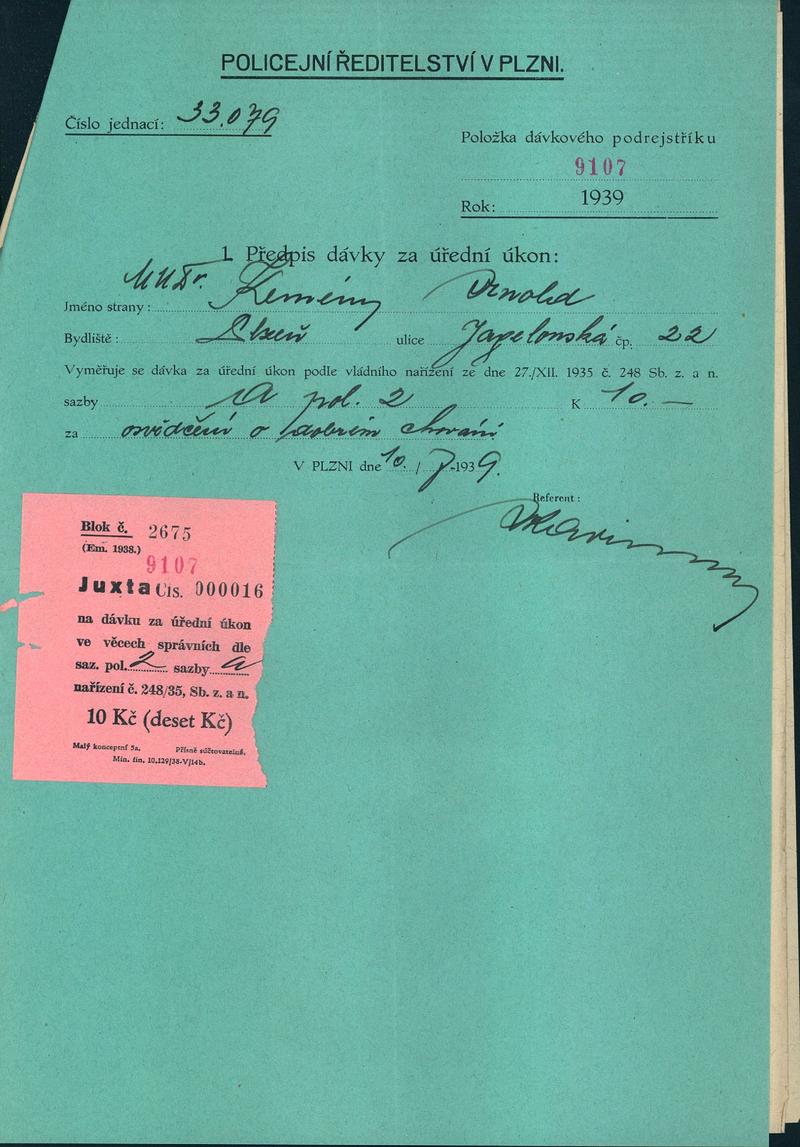 POLICEJNÍ ŘEDITELSTVÍ V PLZNI.
Číslo jednací: 33.079
Položka dávkového podrejstříku
9107
Rok: 1939
1. Předpis dávky za úřední úkon:
MUDr. Kemény Arnold
Jméno strany:
Bydliště: Plzeň ulice Jagelonská čp. 22
Vyměřuje se dávka za úřední úkon podle vládního nařízení ze dne 27./XII. 1935 č. 248 Sb. z. a n.
sazby A pol. 2 K 10.—
za osvědčení o dobrém chování
V PLZNI dne 10. / 7 -1939.
Referent:
Blok č. 2675
(Em. 1938.)
9107
Juxta Čís. 000016
na dávku za úřední úkon
ve věcech správních dle
saz. pol. 2 sazby a
nařízení č. 248/35, Sb. z. a n.
10 Kč (deset Kč)
Malý konceptní 5a. Přísně súčtovatelné.
Min. fin. 10.129/38-V/14b.